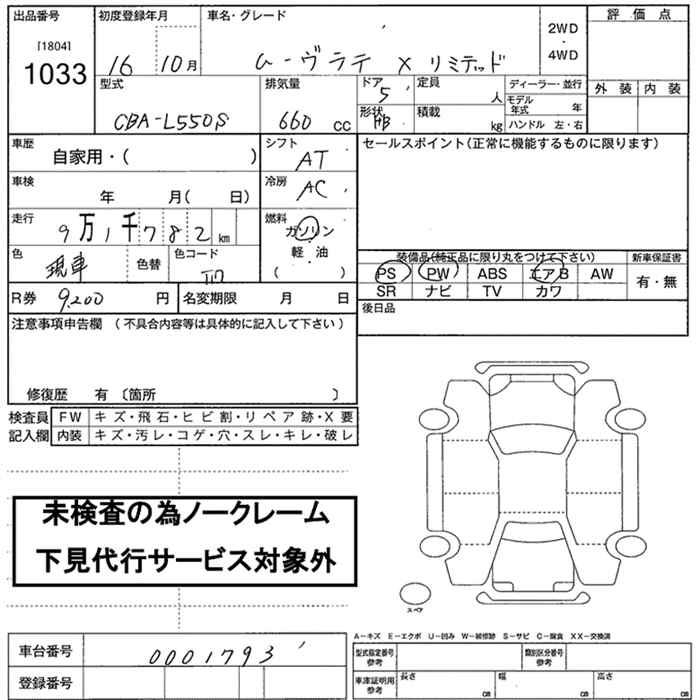 出品番号 初度登録年月 車名・グレード 2WD・4WD 評価点
[1804]
1033
16 10月 ムーヴラテ X リミテッド
外装 内装
型式 排気量 ドア 定員 人 ディーラー・並行
CBA-L550S 660 cc 5
形状 HB 積載 kg モデル年式 年
ハンドル 左・右
車歴 自家用・( ) シフト AT セールスポイント(正常に機能するものに限ります)
車検 年 月( 日) 冷房 AC
走行 9万1千782km 燃料 ガソリン
軽・油
( )
色 現車 色替 色コード
装備品(純正品に限り丸をつけて下さい) 新車保証書
PS PW ABS エアB AW 有・無
SR ナビ TV カワ
R券 9,200円 名変期限 月 日 後日品
注意事項申告欄 (不具合内容等は具体的に記入して下さい)
修復歴 有 〔箇所 〕
検査員 FW キズ・飛石・ヒビ割・リペア跡・X要
記入欄 内装 キズ・汚レ・コゲ・穴・スレ・キレ・破レ
未検査の為ノークレーム
下見代行サービス対象外
スペア
A-キズ E-エクボ U-凹み W-補修跡 S-サビ C-腐食 XX-交換済
車台番号 0001793 型式指定番号 参考 類別区分番号 参考
登録番号 車庫証明用 参考 長さ cm 幅 cm 高さ cm